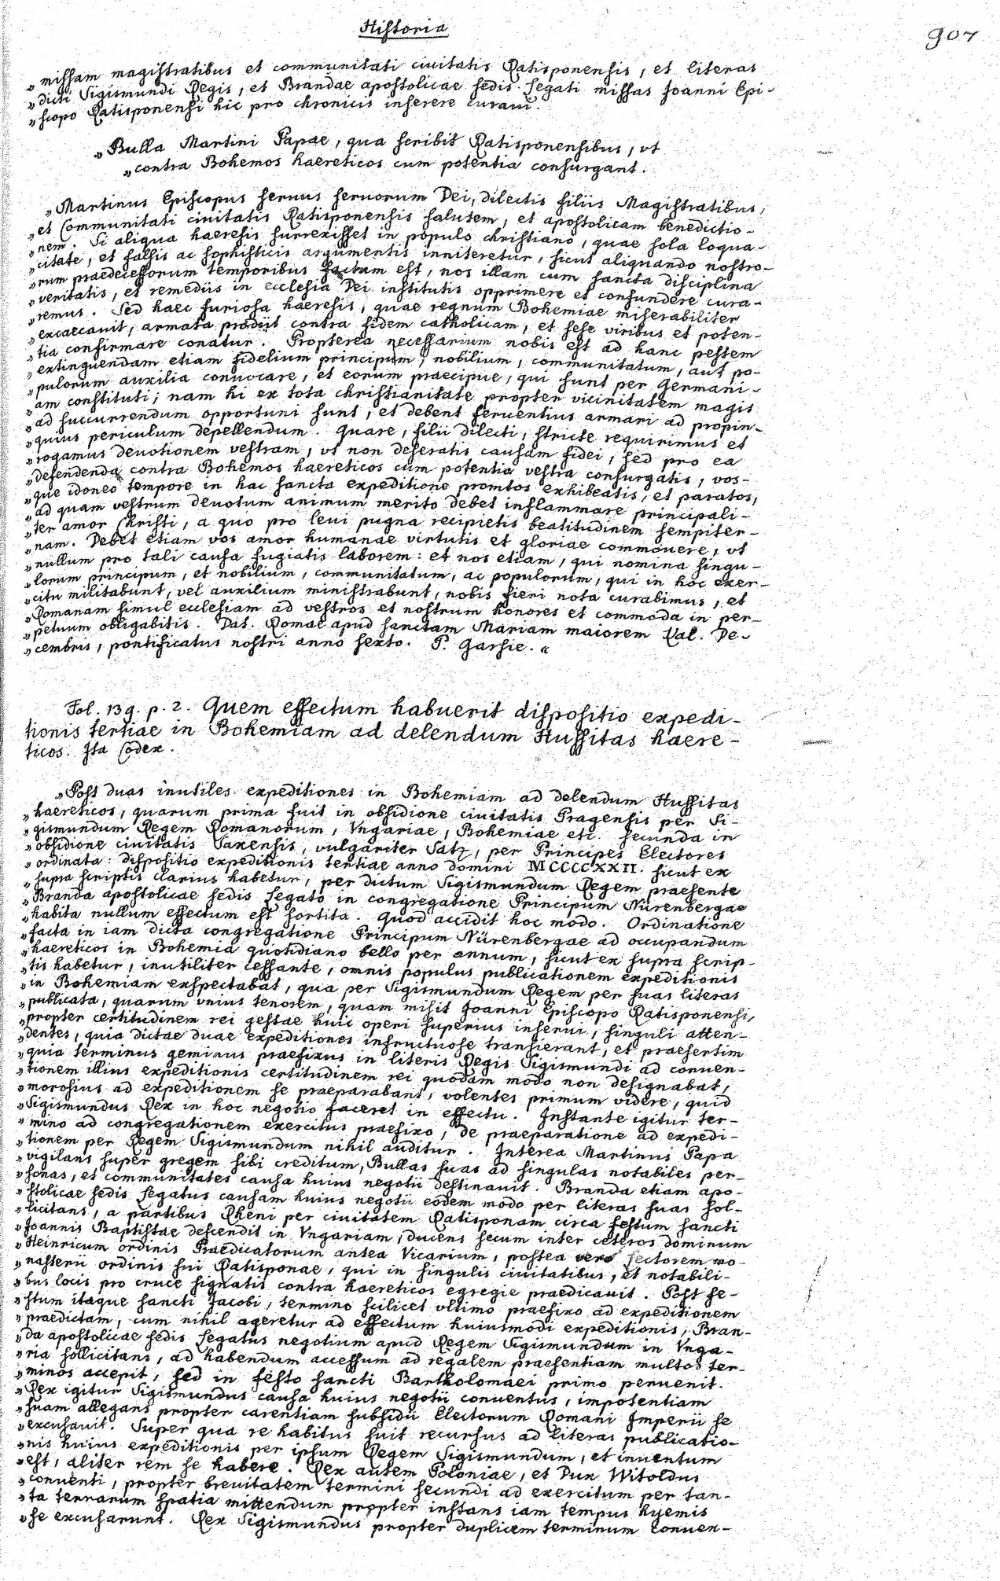 Historia
907
„missam magistratibus et communitati ciuitatis Ratisponensis, et literas
„dicti Sigismundi Regis, et Brandae apostolicae sedis Legati missas Joanni Epi-
„scopo Ratisponensi hic pro chronicis inserere curaui.
„Bulla Martini Papae, qua scribit Ratisponensibus, vt
„contra Bohemos haereticos cum potentia consurgant.
„Martinus Episcopus seruus seruorum Dei, dilectis filiis Magistratibus,
„et Communitati ciuitatis Ratisponensis salutem, et apostolicam benedictio-
„nem. Si aliqua haeresis surrexisset in populo christiano, quae sola loqua-
„citate, et falsis ac sophisticis argumentis inniteretur, sicut aliquando nostro-
„rum praedecessorum temporibus factum est, nos illam cum sancta disciplina
„veritatis, et remediis in ecclesia Dei institutis opprimere et confundere cura-
„remus. Sed haec furiosa haeresis, quae regnum Bohemiae miserabiliter
„excaecauit, armata prodiit contra fidem catholicam, et sese viribus et poten-
„tia confirmare conatur. Propterea necessarium nobis est ad hanc pestem
„extinguendam etiam fidelium principum, nobilium, communitatum, aut po-
„pulorum auxilia conuocare, et eorum praecipue, qui sunt per Germani-
„am constituti; nam hi ex tota christianitate propter vicinitatem magis
„ad succurrendum opportuni sunt, et debent feruentius armari ad propin-
„quius periculum depellendum. Quare, filii dilecti, stricte requirimus et
„rogamus deuotionem vestram, vt non deseratis causam fidei, sed pro ea
„defendenda contra Bohemos haereticos cum potentia vestra consurgatis, vos-
„que idoneo tempore in hac sancta expeditione promtos exhibeatis, et paratos,
„ad quam vestrum deuotum animum merito debet inflammare principali-
„ter amor Christi, a quo pro leui pugna recipietis beatitudinem sempiter-
„nam. Debet etiam vos amor humanae virtutis et gloriae commouere, vt
„nullum pro tali causa fugiatis laborem: et nos etiam, qui nomina singu-
„lorum principum, et nobilium, communitatum, ac populorum, qui in hoc exer-
„citu militabunt, vel auxilium ministrabunt, nobis fieri nota curabimus, et
„Romanam simul ecclesiam ad vestros et nostrum honores et commoda in per-
„petuum obligabitis. Dat. Romae apud sanctam Mariam maiorem Kal. De-
„cembris, pontificatus nostri anno sexto. P. Garsie.“
Fol. 139. p. 2. Quem effectum habuerit dispositio expedi-
tionis tertiae in Bohemiam ad delendum Hussitas haere-
ticos. Ita Codex.
„Post duas inutiles expeditiones in Bohemiam ad delendum Hussitas
„haereticos, quarum prima fuit in obsidione ciuitatis Pragensis per Si-
„gismundum Regem Romanorum, Vngariae, Bohemiae etc. secunda in
„obsidione ciuitatis Saxensis, vulgariter Satz, per Principes Electores
„ordinata: dispositio expeditionis tertiae anno domini MCCCCXXII. sicut ex
„supra scriptis clarius habetur, per dictum Sigismundum Regem praesente
„Branda apostolicae sedis Legato in congregatione Principum Nürenbergae
„habita nullum effectum est sortita. Quod accidit hoc modo. Ordinatione
„facta in iam dicta congregatione Principum Nürenbergae ad occupandum
„haereticos in Bohemia quotidiano bello per annum, sicut ex supra scrip-
„tis habetur, inutiliter cessante, omnis populus publicationem expeditionis
„in Bohemiam exspectabat, qua per Sigismundum Regem per suas literas
„publicata, quarum vnius tenorem, quam misit Joanni Episcopo Ratisponensi,
„propter certitudinem rei gestae huic operi superius inserui, singuli atten-
„dentes, quia dictae duae expeditiones infructuose transierant, et praesertim
„quia terminus geminus praefixus in literis Regis Sigismundi ad conuen-
„tionem illius expeditionis certitudinem rei quodam modo non designabat,
„morosius ad expeditionem se praeparabant, volentes primum videre, quid
„Sigismundus Rex in hoc negotio faceret in effectu. Instante igitur ter-
„mino ad congregationem exercitus praefixo, de praeparatione ad expedi-
„tionem per Regem Sigismundum nihil auditur. Interea Martinus Papa
„vigilans super gregem sibi creditum, Bullas suas ad singulas notabiles per-
„sonas, et communitates causa huius negotii destinauit. Branda etiam apo-
„stolicae sedis Legatus causam huius negotii eodem modo per literas suas sol-
„licitans, a partibus Rheni per ciuitatem Ratisponam circa festum sancti
„Joannis Baptistae descendit in Vngariam, ducens secum inter ceteros dominum
„Heinricum ordinis Praedicatorum antea Vicarium, postea vero Lectorem mo-
„nasterii ordinis sui Ratisponae, qui in singulis ciuitatibus, et notabili-
„bus locis pro cruce signatis contra haereticos egregie praedicauit. Post fe-
„stum itaque sancti Jacobi, termino scilicet vltimo praefixo ad expeditionem
„praedictam, cum nihil ageretur ad effectum huiusmodi expeditionis, Bran-
„da apostolicae sedis Legatus negotium apud Regem Sigismundum in Vnga-
„ria sollicitans, ad habendum accessum ad regalem praesentiam multos ter-
„minos accepit, sed in festo sancti Bartholomaei primo peruenit.
„Rex igitur Sigismundus causa huius negotii conuentus, impotentiam
„suam allegans propter carentiam subsidii Electorum Romani Imperii se
„excusauit. Super qua re habitus fuit recursus ad literas publicatio-
„nis huius expeditionis per ipsum Regem Sigismundum, et inuentum
„est, aliter rem se habere. Rex autem Poloniae, et Dux Witoldus
„conuenti, propter breuitatem termini secundi ad exercitum per tan-
„ta terrarum spatia mittendum propter instans iam tempus hyemis
„se excusarunt. Rex Sigismundus propter duplicem terminum conuen-